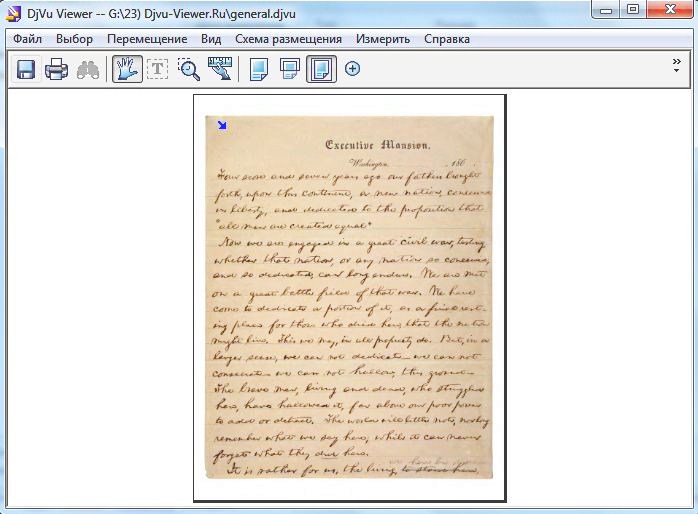 DjVu Viewer -- G:\23) Djvu-Viewer.Ru\general.djvu
Файл Выбор Перемещение Вид Схема размещения Измерить Справка
T
Executive Mansion,
Washington, , 186 .
Four score and seven years ago our fathers brought
forth, upon this continent, a new nation, conceived
in liberty, and dedicated to the proposition that
"all men are created equal"
Now we are engaged in a great civil war, testing
whether that nation, or any nation so conceived,
and so dedicated, can long endure. We are met
on a great battle field of that war. We have
come to dedicate a portion of it, as a final rest-
ing place for those who died here, that the nation
might live. This we may, in all propriety do. But, in a
larger sense, we can not dedicate — we can not
consecrate — we can not hallow, this ground —
The brave men, living and dead, who struggled
here, have hallowed it, far above our poor power
to add or detract. The world will little note, nor long
remember what we say here; while it can never
forget what they did here.
It is rather for us, the living, to stand here,